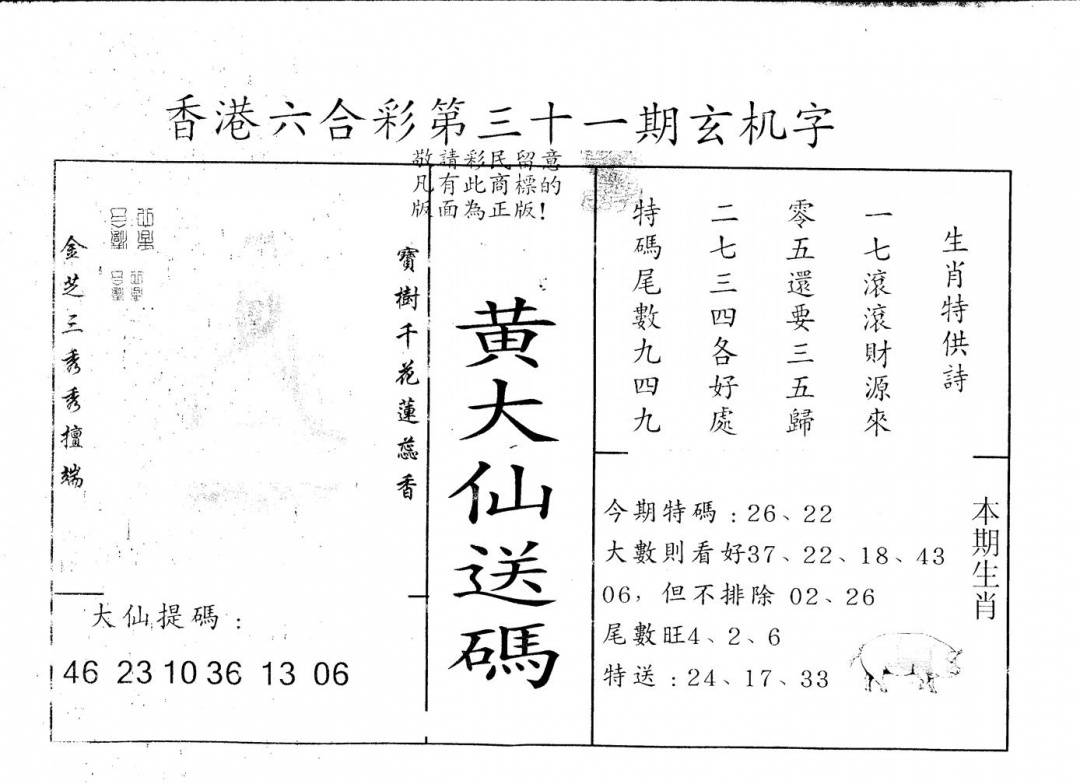 香港六合彩第三十一期玄机字
敬請彩民留意
凡有此商標的
版面為正版!
生肖特供詩
一七滾滾財源來
零五還要三五歸
二七三四各好處
特碼尾數九四九
黄大仙送碼
寶樹千花蓮蕊香
金芝三秀秀擅端
大仙提碼：
46 23 10 36 13 06
本期生肖
今期特碼：26、22
大數則看好37、22、18、43
06，但不排除 02、26
尾數旺4、2、6
特送：24、17、33